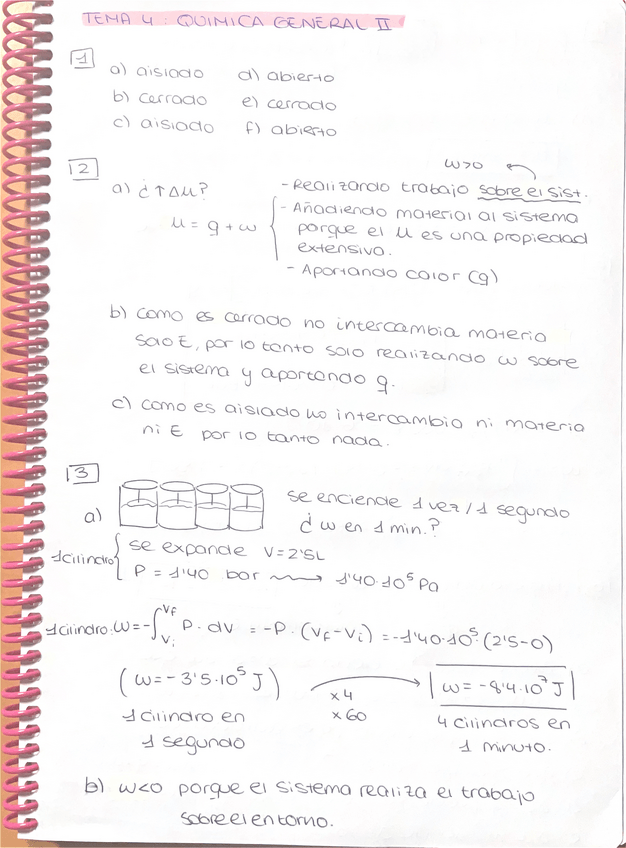 TEMA 4 : QUIMICA GENERAL II
1
a) aislado d) abierto
b) cerrado e) cerrado
c) aislado f) abierto
2
w>0
a) ¿↑Δu?
- Realizando trabajo sobre el sist.
u = q + w
- Añadiendo material al sistema
porque el u es una propiedad
extensiva.
- Aportando calor (q)
b) como es cerrado no intercambia materia
solo E, por lo tanto solo realizando w sobre
el sistema y aportando q.
c) como es aislado no intercambio ni materia
ni E por lo tanto nada.
3
a)
se enciende 1 vez / 1 segundo
¿w en 1 min.?
1 cilindro
se expande V=2'5L
P = 1'40 bar → 1'40·10⁵ Pa
1 cilindro: w=-∫Vi Vf P·dV = -P·(Vf-Vi) = -1'40·10⁵·(2'5-0)
(w=-3'5·10⁵ J) x4 x60 |w= -8'4·10⁷ J|
1 cilindro en 4 cilindros en
1 segundo 1 minuto.
b) w<0 porque el sistema realiza el trabajo
sobre el entorno.